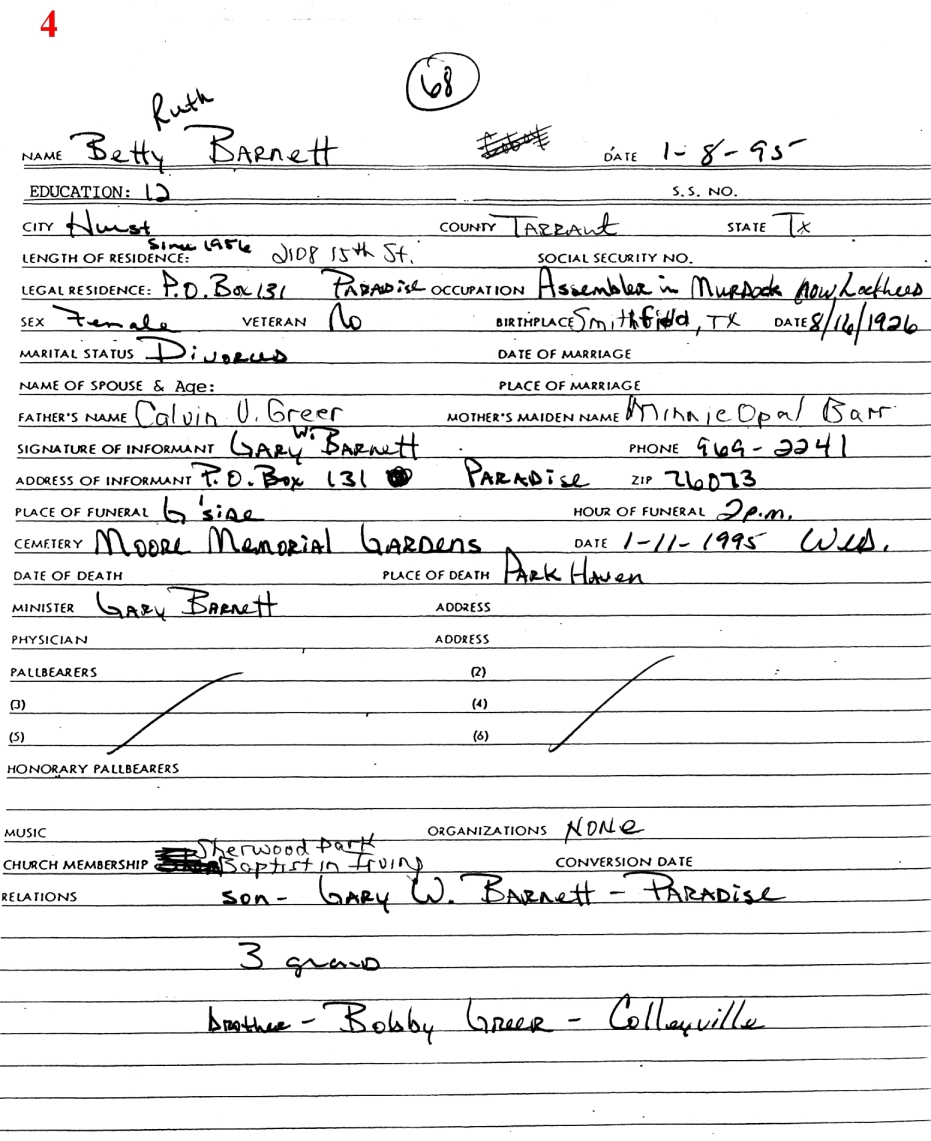 4
68
Ruth
NAME Betty BARNett DATE 1-8-95
EDUCATION: 12 S.S. NO.
CITY Hurst COUNTY TARRANt STATE Tx
Since 1956
LENGTH OF RESIDENCE: 2108 15th St. SOCIAL SECURITY NO.
LEGAL RESIDENCE: P.O. Box 131 PARADise OCCUPATION Assembler in MURDock now Lockheed
SEX Female VETERAN No BIRTHPLACE Smithfield, TX DATE 8/16/1926
MARITAL STATUS Divorced DATE OF MARRIAGE
NAME OF SPOUSE & Age: PLACE OF MARRIAGE
FATHER'S NAME Calvin V. Greer MOTHER'S MAIDEN NAME Minnie Opal Barr
SIGNATURE OF INFORMANT GARY W. BARNett PHONE 969-2241
ADDRESS OF INFORMANT P.O. Box 131 PARADise ZIP 76073
PLACE OF FUNERAL G'side HOUR OF FUNERAL 2p.m.
CEMETERY MOORE MEMORIAL GARDENS DATE 1-11-1995 Wed.
DATE OF DEATH PLACE OF DEATH PARK HAVEN
MINISTER GARY BARNett ADDRESS
PHYSICIAN ADDRESS
PALLBEARERS (2)
(3) (4)
(5) (6)
HONORARY PALLBEARERS
MUSIC ORGANIZATIONS NONE
Sherwood Park
CHURCH MEMBERSHIP Baptist in Irving CONVERSION DATE
RELATIONS son - GARY W. BARNett - PARADise
3 grand
brother - Bobby Greer - Colleyville